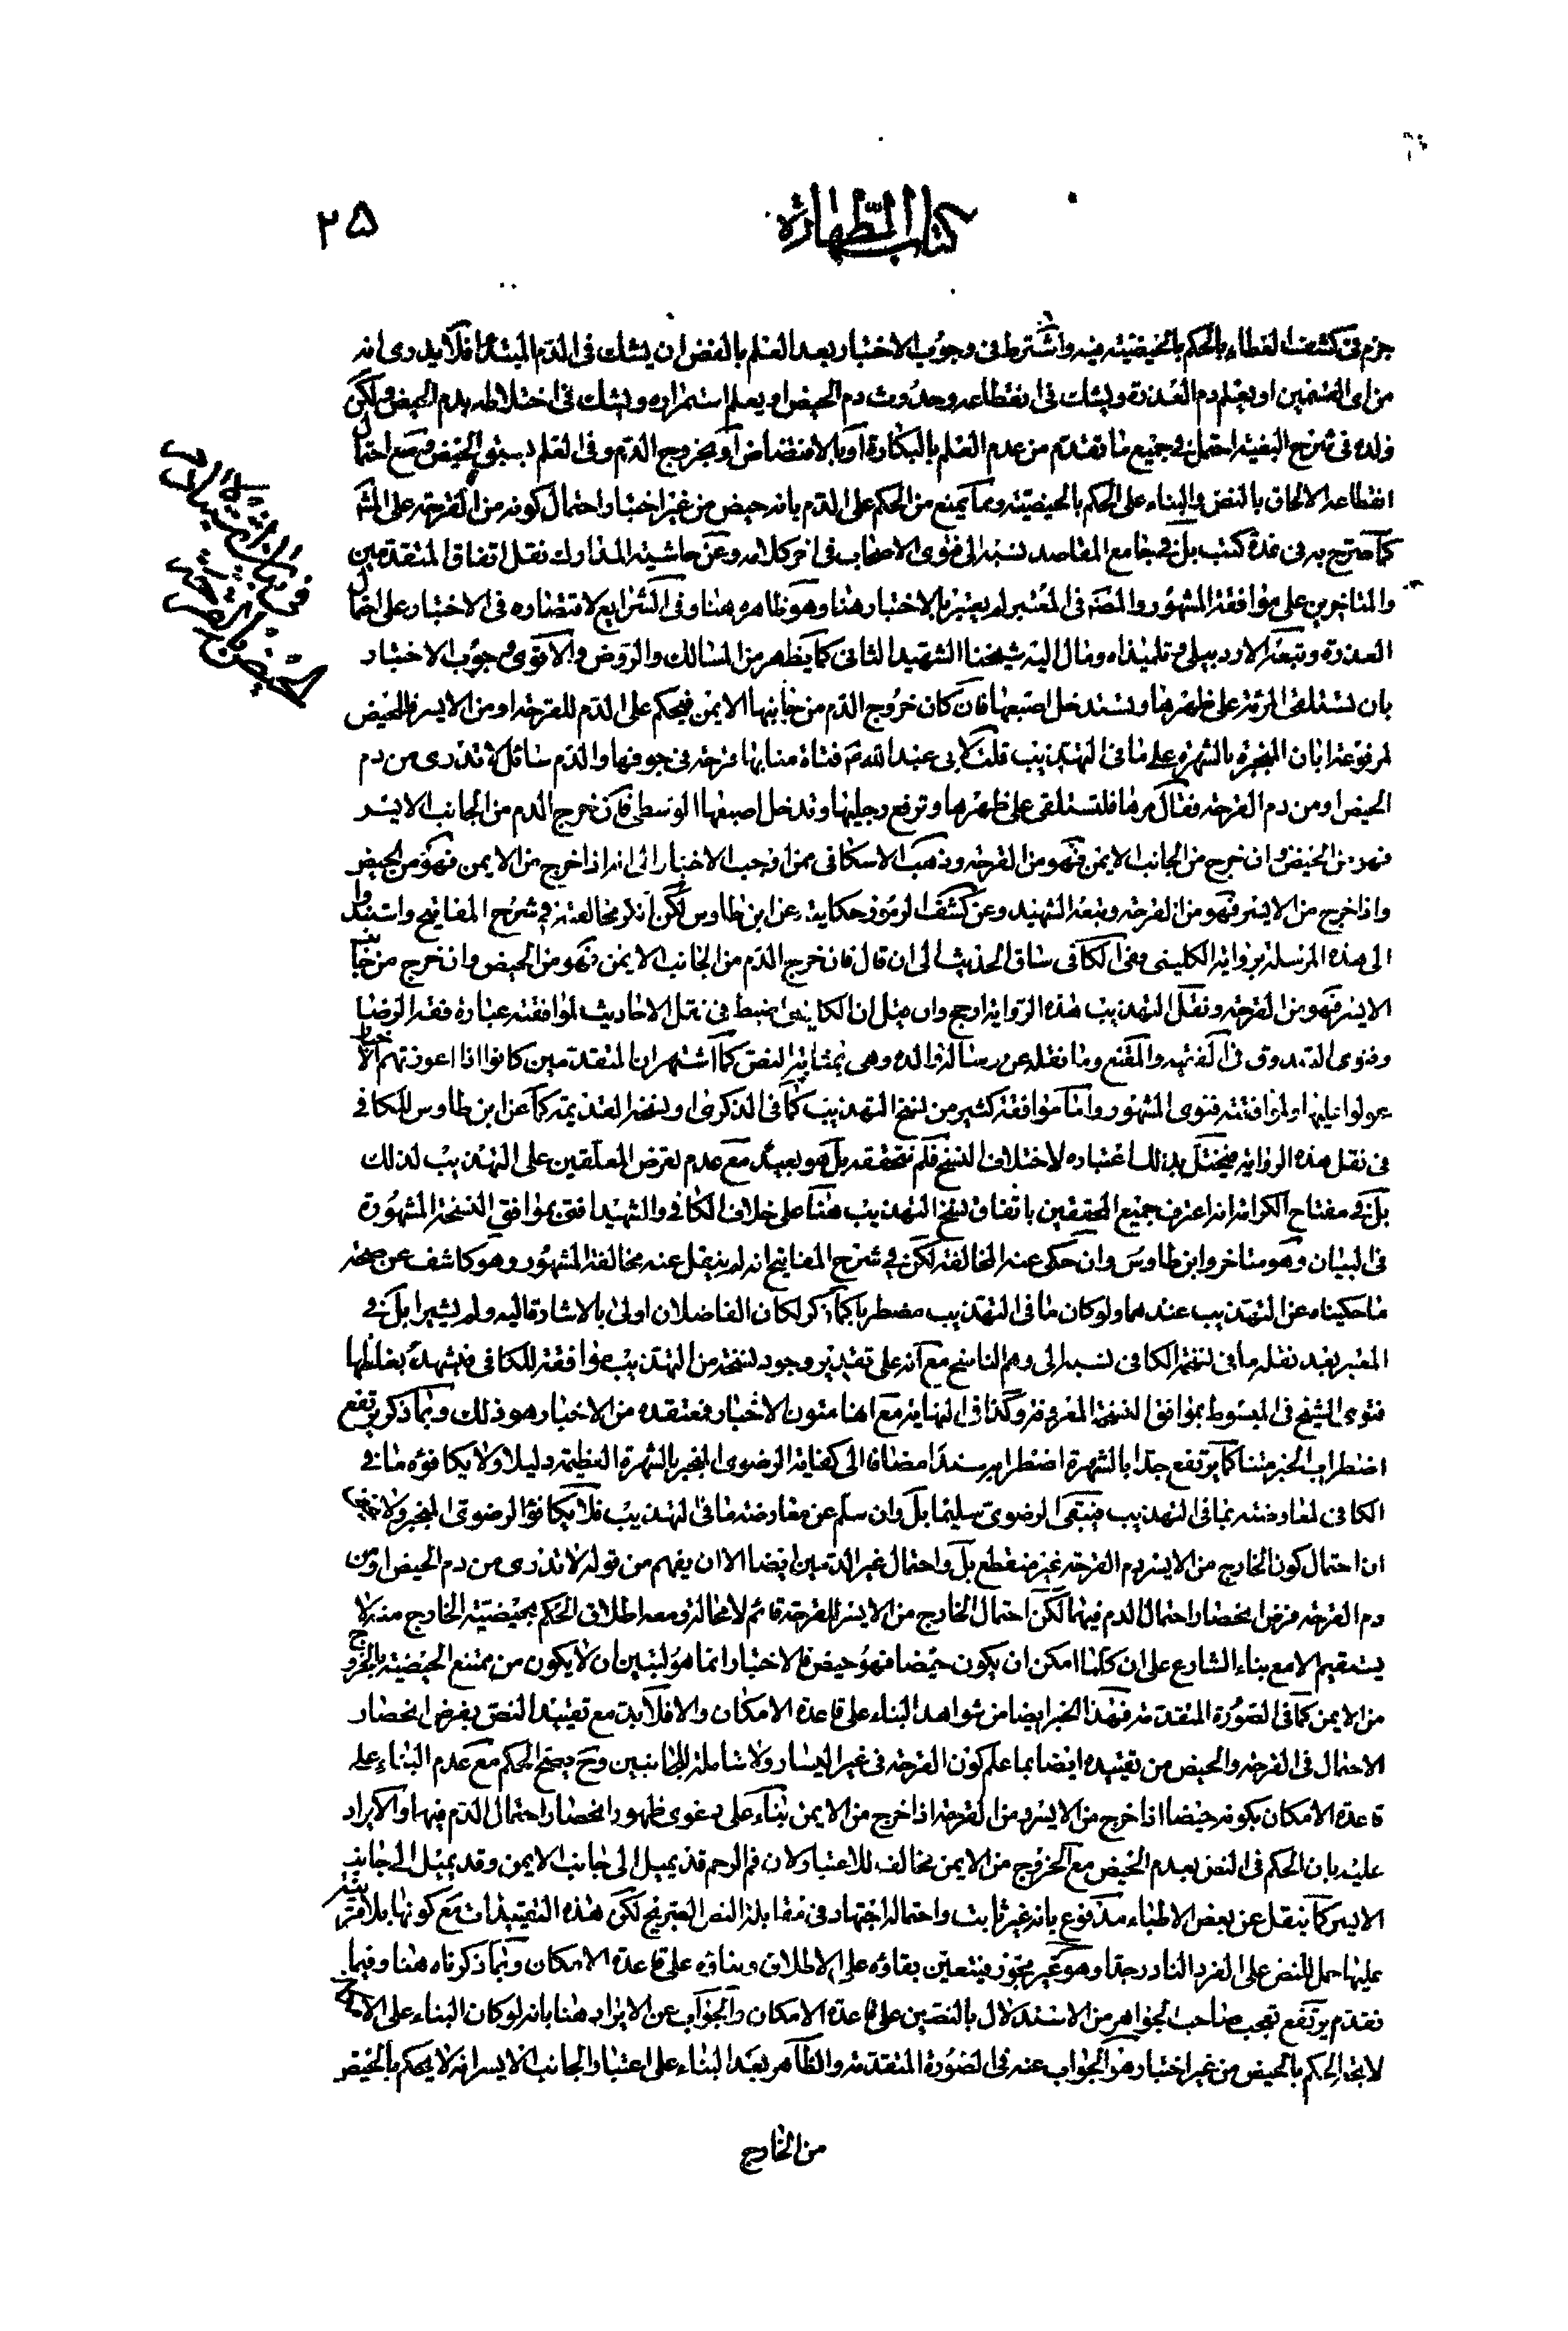 كتاب الطهارة
٢٥
جزم في كشف الغطاء بالحكم بالحيضيته فيه واشترط في وجوب الاختبار بعد العلم بالفض ان يشك في الدم المبتدأ فلا يدرى انه
من اى القسمين او يعلم دم العذرة ويشك في انقطاعه وحدوث دم الحيض او يعلم استمراره ويشك في اختلاطه بدم الحيض ولكن
ولده في شرح البغية احتمل في جميع ما تقدم من عدم العلم بالبكارة او بالافتضاض او بخروج الدم وفي العلم بسبق الحيض ومع احتمال
انقطاعه الالحاق بالنص والبناء على الحكم بالحيضيته ومما يمنع من الحكم على الدم بانه حيض من غير اختبار احتمال كونه من القرحة على المش
كما صرح به في عدة كتب بل في جامع المقاصد نسبه الى فتوى الاصحاب في اخر كلامه وعن حاشية المدارك نقل اتفاق المتقدمين
والمتاخرين على موافقة المشهور والمصنف في المعتبر لم يعتبر الاختبار هنا وهو ظاهره هنا وفي الشرايع لاقتصاره في الاختبار على احتمال
العذرة وتبعه الاردبيلي وتلميذاه ومال اليه شيخنا الشهيد الثاني كما يظهر من المسالك والروض والاقوى وجوب الاختبار
بان تستلقى المرئة على ظهرها وتستدخل اصبعها فان كان خروج الدم من جانبها الايمن فيحكم على الدم للقرحة او من الايسر فللحيض
لمرفوعة ابان المنجبرة بالشهرة على ما في التهذيب قلت لابي عبد الله ع فتاة منا بها قرحة في جوفها والدم سائل لا تدرى من دم
الحيض او من دم القرحة فقال مرها فلتستلقى على ظهرها وترفع رجليها وتدخل اصبعها الوسطى فان خرج الدم من الجانب الايسر
فهو من الحيض وان خرج من الجانب الايمن فهو من القرحة وذهب الاسكافي ممن اوجب الاختبار الى انه اذا خرج من الايمن فهو من الحيض
واذا خرج من الايسر فهو من القرحة وتبعه الشهيد وعن كشف الرموز حكايته عن ابن طاوس لكن انكر مخالفته في شرح المفاتيح واستندوا
الى هذه المرسلة برواية الكليني وفي الكافي ساق الحديث الى ان قال فان خرج الدم من الجانب الايمن فهو من الحيض وان خرج من جانب
الايسر فهو من القرحة ونقل التهذيب هذه الرواية ارجح وان قيل ان الكليني اضبط في نقل الاحاديث لموافقته عبارة فقه الرضا
وفتوى الصدوق في الفقيه والمقنع وما نقله عن رسالة والده وهي بمثابة النص كما اشتهر ان المتقدمين كانوا اذا اعوزتهم الاخبار
عولوا عليها ولموافقته فتوى المشهور واما موافقة كثير من نسخ التهذيب كما في الذكرى او نسخه القديمة كما عن ابن طاوس للكافي
في نقل هذه الرواية فيختل بذلك اعتباره لاختلاف النسخ فلم نتحققه بل هو بعيد مع عدم تعرض المعلقين على التهذيب لذلك
بل في مفتاح الكرامة انه اعترف جميع المحققين باتفاق نسخ التهذيب هنا على خلاف الكافي والشهيد افتى بموافق النسخة المشهورة
في البيان وهو متاخر وابن طاوس وان حكى عنه المخالفة لكن في شرح المفاتيح انه لم ينقل عنه مخالفة المشهور وهو كاشف عن صحة
ما حكيناه عن التهذيب عندهما ولو كان ما في التهذيب مضطربا كما ذكر لكان الفاضلان اولى بالاشارة اليه ولم يشيرا بل في
المعتبر بعد نقله ما في نسخة الكافي نسبه الى وهم الناسخ مع انه على تقدير وجود نسخة من التهذيب موافقة للكافي فيشهد بغلطها
فتوى الشيخ في المبسوط بموافق النسخة المعروفة وكذا في النهاية مع انها متون الاخبار فمعتقده من الاخبار هو ذلك وبما ذكر يرتفع
اضطراب الخبر متنا كما يرتفع جدا بالشهرة اضطرابه سندا مضافا الى كفاية الرضوى المنجبر بالشهرة العظيمة دليلا ولا يكافؤه ما في
الكافي لمعارضته بما في التهذيب فيبقى الرضوى سليما بل وان سلم عن معارضة ما في التهذيب فلا يكافؤ الرضوى المنجبر ولا خفاء
ان احتمال كون الخارج من الايسر دم القرحة غير منقطع بل واحتمال غير الدمين ايضا الا ان يفهم من قوله لا تدرى من دم الحيض او من
دم القرحة فرض انحصار احتمال الدم فيهما لكن احتمال الخارج من الايسر للقرحة قائم لا محالة ومعه اطلاق الحكم بحيضية الخارج منه لا
يستقيم الا مع بناء الشارع على ان كلما امكن ان يكون حيضا فهو حيض فالاختبار انما هو ليتبين ان لا يكون من ممتنع الحيضية بالخروج
من الايمن كما في الصورة المتقدمة فهذا الخبر ايضا من شواهد البناء على قاعدة الامكان والا فلا بد مع تقييد النص بفرض انحصار
الاحتمال في القرحة والحيض من تقييده ايضا بما علم كون القرحة في غير اليسار ولا شاملة للجانبين وح يصح الحكم مع عدم البناء على
قاعدة الامكان بكونه حيضا اذا خرج من الايسر ومن القرحة اذا خرج من الايمن بناء على دعوى ظهور انحصار احتمال الدم فيهما والايراد
عليه بان الحكم في النص بعدم الحيض مع الخروج من الايمن مخالف للاعتبار لان فم الرحم قد يميل الى جانب الايمن وقد يميل الى جانب
الايسر كما ينقل عن بعض الاطباء مدفوع بانه غير ثابت واحتماله اجتهاد في مقابلة النص الصريح لكن هذه التقييدات مع كونها بلا قرينة
عليها حمل للنص على الفرد النادر جدا وهو غير مجوز فيتعين بقاؤه على الاطلاق وبناؤه على قاعدة الامكان وبما ذكرناه هنا وفيما
تقدم يرتفع تعجب صاحب الجواهر من الاستدلال بالنصين على قاعدة الامكان والجواب عن الايراد هنا بانه لو كان البناء على الامكان
لاتجه الحكم بالحيض من غير اختبار هو الجواب عنه في الصورة المتقدمة والظاهر بعد البناء على اعتبار الجانب الايسر انه لا يحكم بالحيض
من الخارج